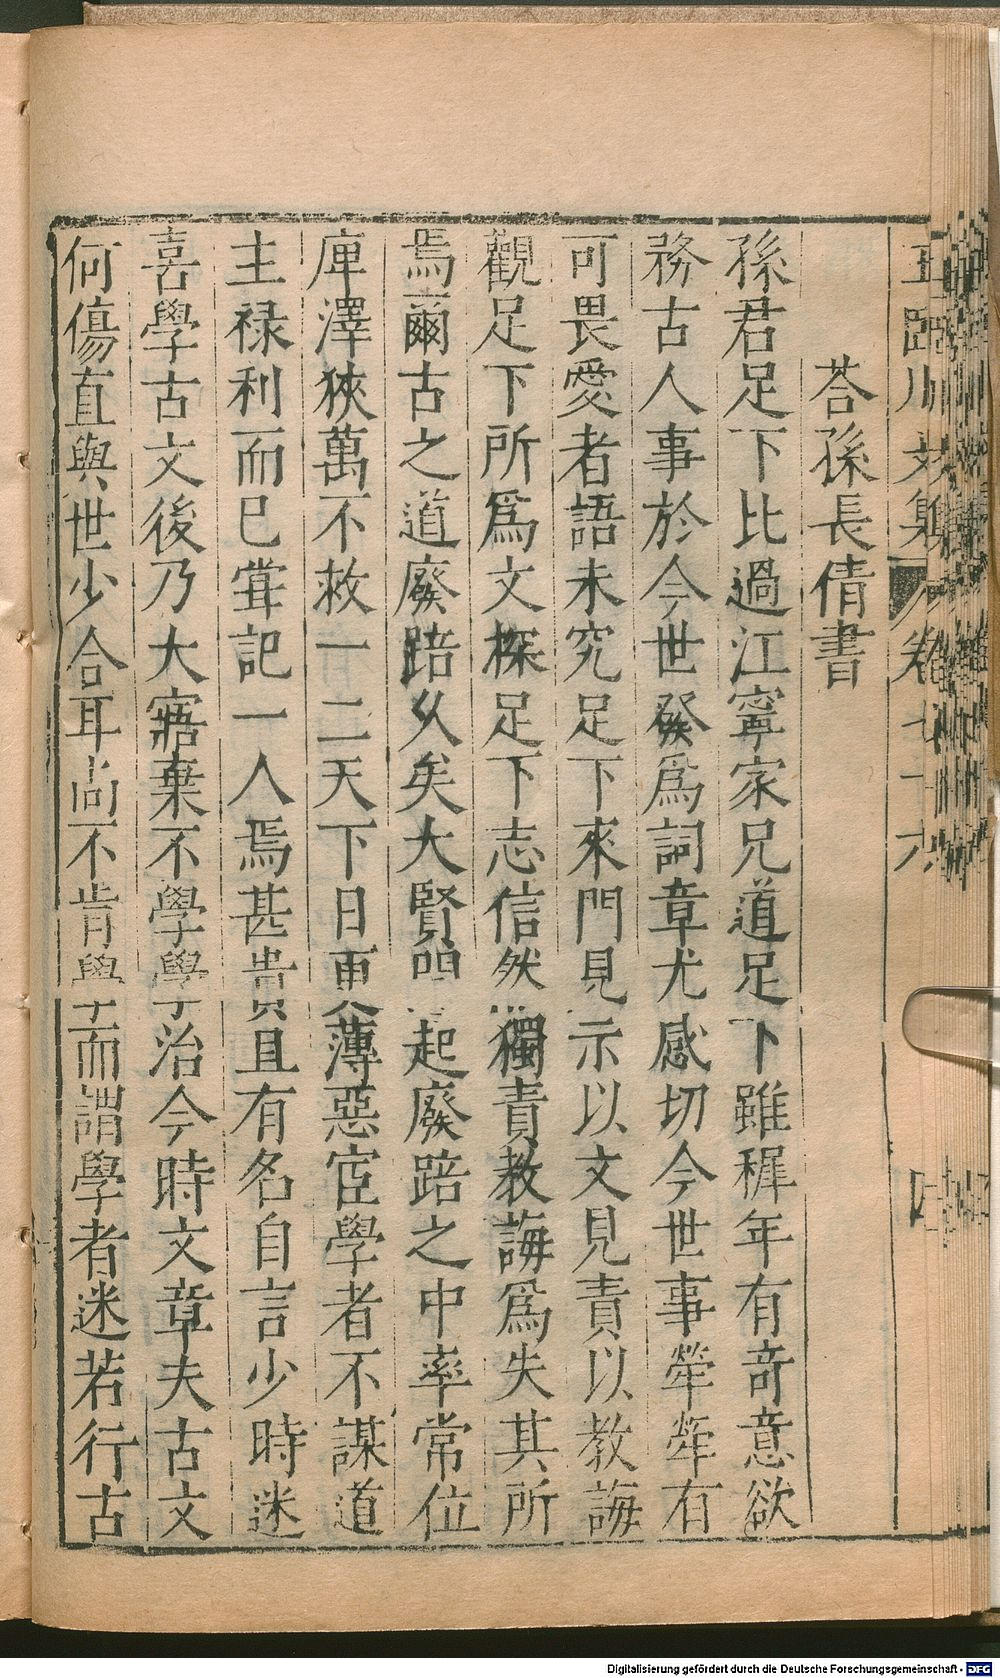 王臨川文集 卷七十六 四
荅孫長倩書
孫君足下比過江寧家兄道足下雖穉年有奇意欲
務古人事於今世發爲詞章尤感切今世事犖犖有
可畏愛者語未究足下來門見示以文見責以教誨
觀足下所爲文探足下志信然獨責教誨爲失其所
焉爾古之道廢踣久矣大賢間起廢踣之中率常位
庳澤狹萬不救一二天下日更薄惡宦學者不謀道
主禄利而已甞記一人焉甚貴且有名自言少時迷
喜學古文後乃大寤棄不學學治今時文章夫古文
何傷直與世少合耳尚不肯學而謂學者迷若行古
Digitalisierung gefördert durch die Deutsche Forschungsgemeinschaft - DFG